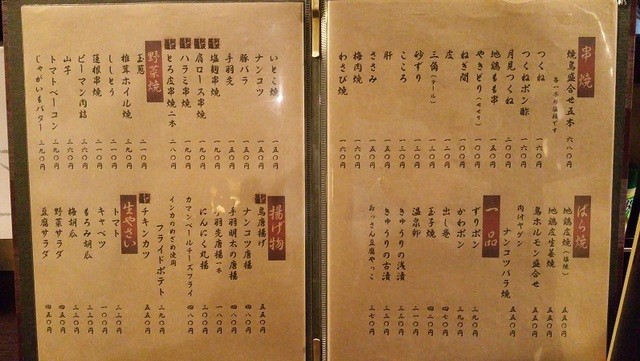 串焼
焼鳥盛合せ五本 六八〇円
各一本の価格です
つくね 一六〇円
つくねポン酢 一六〇円
月見つくね 二一〇円
地鶏もも串 一五〇円
やきとり(せせり) 一五〇円
ねぎ間 一五〇円
皮 一三〇円
三角(テール) 一三〇円
砂ずり 一三〇円
こころ 一三〇円
肝 一五〇円
ささみ 一五〇円
梅肉焼 一六〇円
わさび焼 一六〇円
ばら焼
地鶏皮焼(塩焼) 五五〇円
地鶏皮生姜焼 五五〇円
鳥ホルモン盛合せ 五五〇円
肉付ヤゲン
ナンコツバラ焼 五五〇円
一品
ずりポン 三九〇円
かわポン 三九〇円
出し巻 四七〇円
玉子焼 四八〇円
温泉卵 二一〇円
きゅうりの浅漬 三三〇円
きゅうりの古漬 三三〇円
おっさん豆腐やっこ 三七〇円
いとこ焼 一五〇円
ナンコツ 一五〇円
豚バラ 一五〇円
手羽先 一五〇円
塩麹串焼
肩ロース串焼 一九〇円
ハラミ串焼 一九〇円
とろ皮串焼二本 二八〇円
野菜焼
玉葱 二一〇円
椎茸ホイル焼
ししとう
蓮根串焼
ピーマン肉詰
山芋
トマトベーコン
じゃがいもバター 三九〇円
揚げ物
鳥唐揚げ 五五〇円
ナンコツ唐揚 四八〇円
手羽明太の唐揚
手羽先唐揚一本 一八〇円
にんにく丸揚 三〇〇円
カマンベールチーズフライ 四八〇円
インカのめざめ使用
フライドポテト 三九〇円
チキンカツ 五五〇円
生やさい
トマト 三三〇円
キャベツ 一〇〇円
もろみ胡瓜 三三〇円
梅胡瓜 三三〇円
野菜サラダ 四五〇円
豆腐サラダ 四五〇円